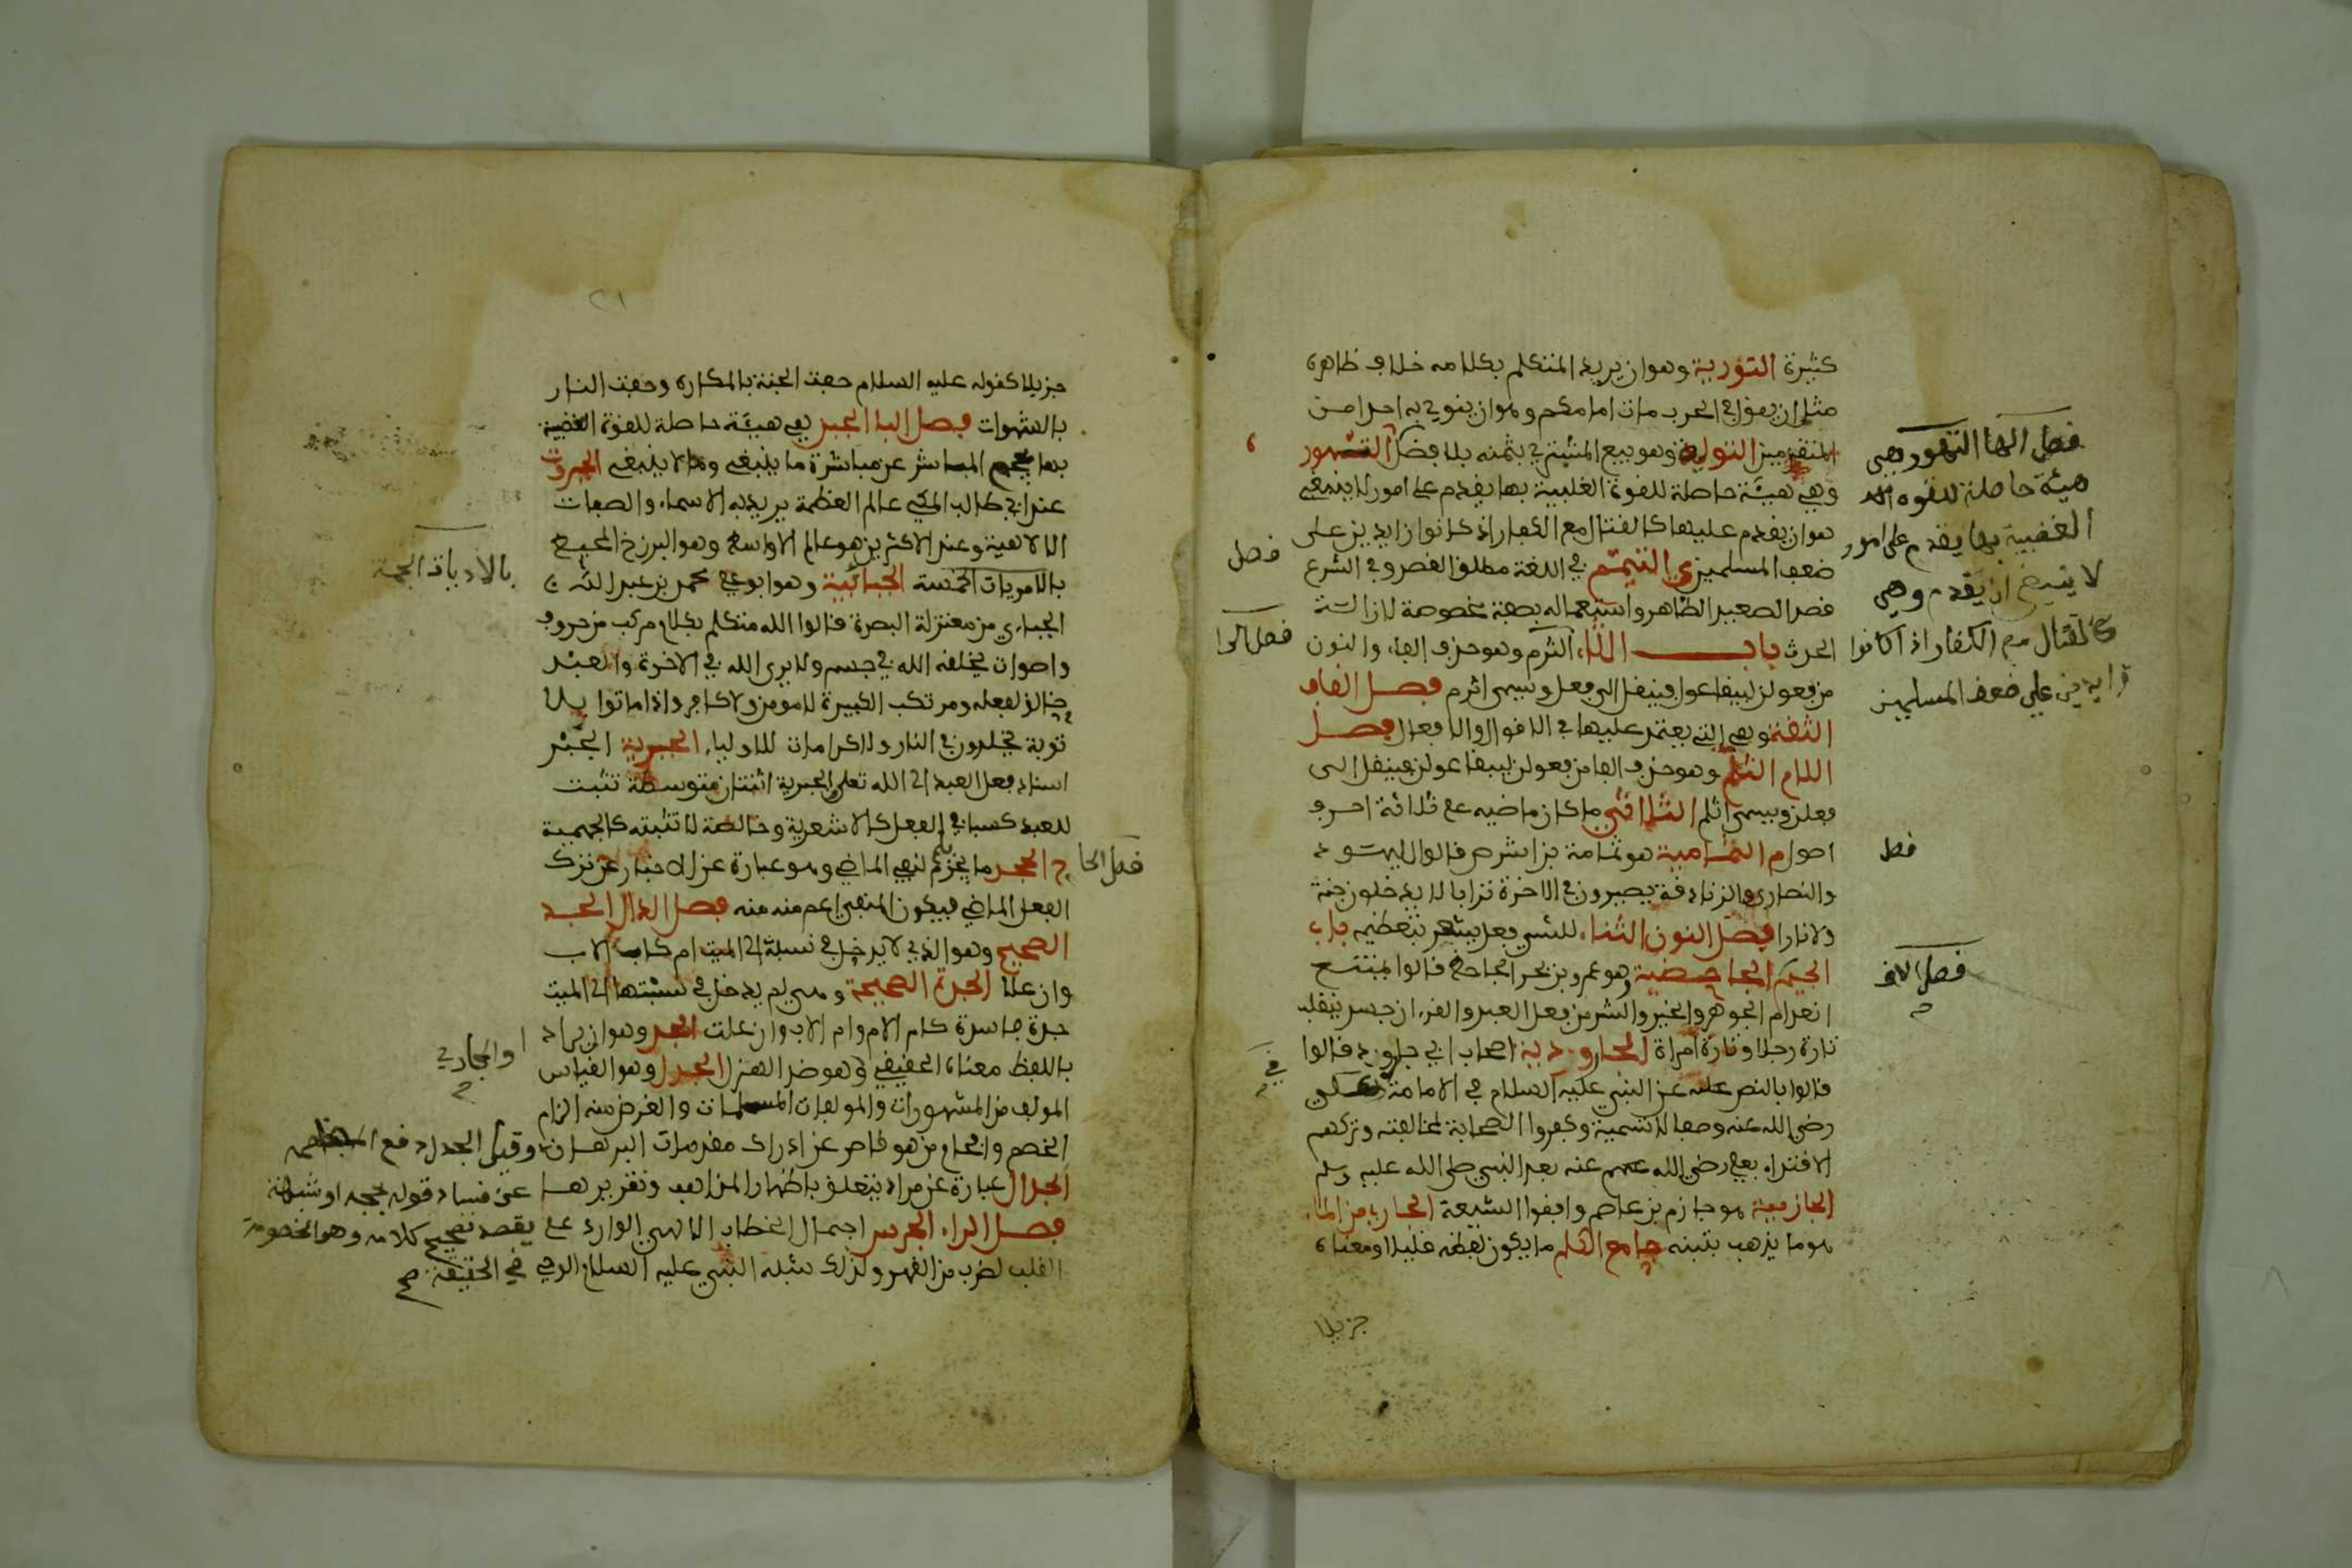 كثيرة التورية وهو ان يريد المتكلم بكلامه خلاف ظاهره
مثل ان يقول في الحرب مات امامكم وهو ان ينوي به احدا من
المتقدمين التولية وهو بيع المشتري بثمنه بلا فضل التهور
وهي هيئة حاصلة للقوة الغلبية بها يقدم على امور لا ينبغي
هو ان يقدم عليها كالقتال مع الكفار اذ كانوا زايدين على
ضعف المسلمين التيمم في اللغة مطلق القصد وفي الشرع
قصد الصعيد الطاهر واستعماله بصفة مخصوصة لازالة
الحدث باب الثاء الثرم وهو حذف الفاء والنون
من فعولن ليبقا عول فينقل الى فعل ويسمى اثرم فصل القاف
الثقة وهي التي يعتمد عليها في الاقوال والافعال فصل
اللام الثلم وهو حذف الفا من فعولن ليبقا عولن فينقل الى
فعلن ويسمى اثلم الثلاثي ما كان ماضيه على ثلاثة احرف
اصول م الثمامية هو ثمامة بن اشرص قالوا اليهود
والنصارى والزنادقة يصيرون في الاخرة ترابا لا يدخلون جنة
ولا نارا فصل النون الثناء للشي فعل يشعر بتعظيمه باب
الجيم الجاحضية هو عمرو بن بحر الجاحظ قالوا يمتنع
انعدام الجوهر والخير والشر من فعل العبد والقرءان جسد ينقلب
تارة رجلا وتارة امراة الجارودية اصحاب ابي جارود قالوا
قالوا بالنص عن النبي عليه السلام في الامامة على
رضي الله عنه وصفا لا تسمية وكفروا الصحابة لمخالفته وتركهم
الاقتداء بعلي رضي الله عنه بعد النبي صلى الله عليه وسلم
الجازمية هو جازم بن عاصم وافقوا الشيعة الجاري من الماء
هو ما يذهب بتبنه جامع الكلم ما يكون لفظه قليلا ومعناه
جزيلا
فصل الها التهور وهي
هيئة حاصلة للقوه
الغضبية بها يقدم على امور
لا ينبغي ان يقدم وهي
كالقتال مع الكفار اذا كانوا
زايدين على ضعف المسلمين
فصل
فصل الالف
فصل
فصل الرا
في
جزيلا كقوله عليه السلام حفت الجنة بالمكاره وحفت النار
بالشهوات فصل البا الجبن هي هيئة حاصلة للقوة الغضبية
بها يحجم المباشر عن مباشرة ما ينبغي وما لا ينبغي الجبروت
عند ابي طالب المكي عالم العظمة يريد به الاسماء والصفات
الالاهية وعند الاكثرين هو عالم الاواسط وهو البرزخ المحيط
بالامريات الخمسة الجبائية وهو ابو علي محمد بن عبد الله
الجبائي من معتزلة البصرة قالوا الله متكلم بكلام مركب من حروف
واصوات يخلقه الله في جسم ولا يرى الله في الاخرة والعبد
خالق لفعله ومرتكب الكبيرة لا مومن ولا كافر واذا ماتوا بلا
توبة يخلدون في النار ولا كرامات للاولياء الجبرية الجبر
اسناد فعل العبد الى الله تعلى والجبرية اثنتان متوسطة تثبت
للعبد كسبا في الفعل كالاشعرية وخالصة لا تثبته كالجهمية
الجحد ما ينجزم بلم لنفي الماضي وهو عبارة عن الاخبار عن ترك
الفعل الماضي فيكون النفي اعم منه فصل الدال الجد
الصحيح وهو الذي لا يدخل في نسبته الى الميت ام كاب الاب
وان علا الجدة الصحيحة وهي لم يدخل في نسبتها الى الميت
جدة فاسدة كام الام وام الاب وان علت الجد وهو ان يراد
باللفظ معناه الحقيقي وهو ضد الهزل الجدل وهو القياس
المولف من المشهورات والمولفات المسلمات والغرض منه الزام
الخصم وافحام من هو قاصر عن ادراك مقدمات البرهان وقيل الجدل دفع
الجدال عبارة عن مراء يتعلق باظهار المذاهب وتقريرها
فصل الراء الجرس اجمال الخطاب الالاهي الوارد على
القلب لضرب من القهر ولذلك شبه النبي عليه السلام الوحي
عن فساد قوله بحجه او شبهة
يقصد تصحيح كلامه وهو الخصومة
في الحقيقة صح
بالادبيات الجمة
فصل الحا
او المجازي
٢١